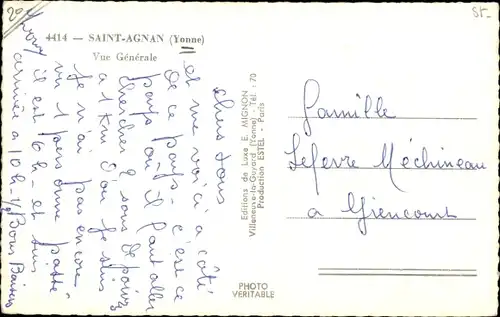 4414 — SAINT-AGNAN (Yonne)
Vue Générale
chers tous
et me voici a côté
de ce pays - c'est ce
pays où il faut aller
chercher 2 sous de poivre
a 1 Km d'où je suis
je n'ai pas encore
vu 1 personne passé
il est 16 h - et suis
arrivée a 10 h - 1/2 Bons Baisers
Editions de Luxe E. MIGNON
Villeneuve-la-Guyard (Yonne) - Tél. : 70
Production ESTEL - Paris
PHOTO
VERITABLE
Famille
Lefevre Méchineau
a Giencourt
St-